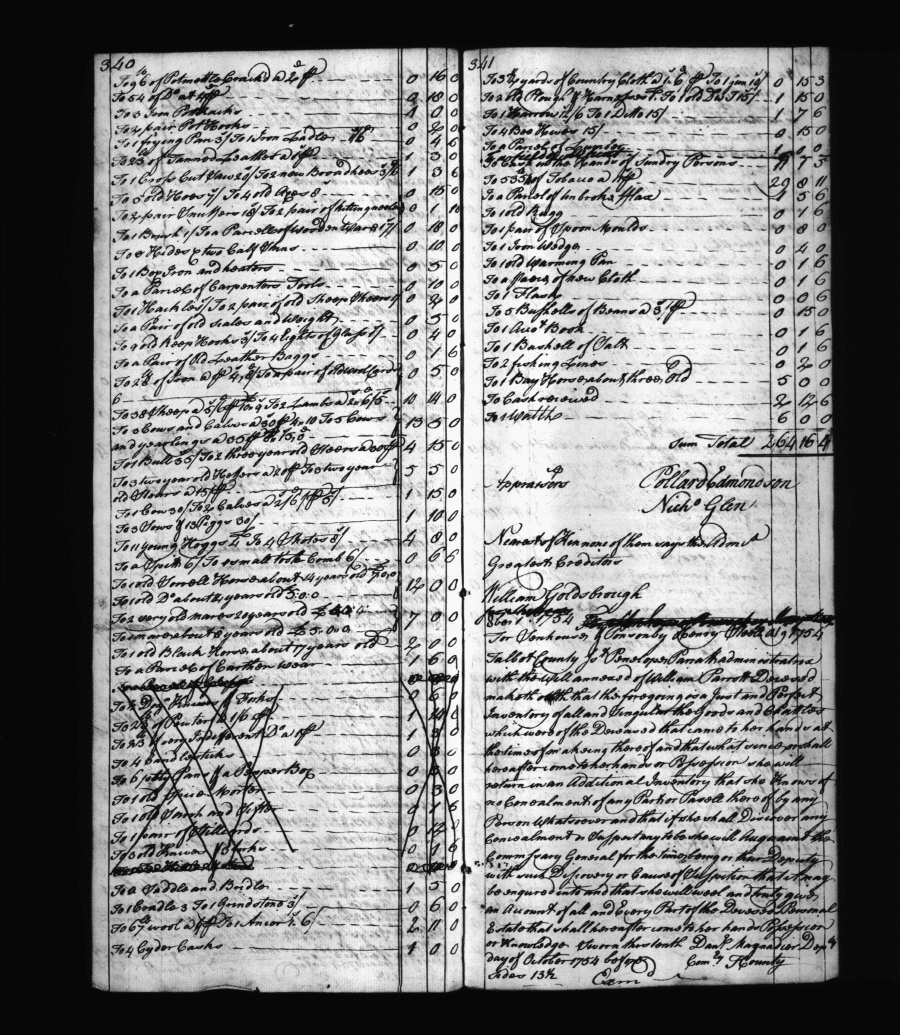 340
To 96 lb of Potmettle Crackd a 2d pr — 0 16 0
To 54 of Do at 4 pr — 0 18 0
To 3 Iron Potracks — 1 0 0
To 2 pair Pot Hooks — 0 2 0
To 1 frying Pan 3/ To 1 Iron Ladle — 0 4 6
To 23 of Tannd Leather a — 1 3 0
To 1 Cross Cut Saw 20/ To 2 new Broad hoes 3/6 — 1 3 6
To 5 old Hoes 7/ To 4 old Axes 8 — 0 15 0
To 2 pair Snuffers 18 To a pair of — 0 1
To 1 Brush 1/ To a Parcell of Wooden Ware 17/ — 0 18 0
To 2 Hides & two Calf Skins — 0 10 0
To 1 Box Iron and heaters — 0 5 0
To a Parcel of Carpenters Tools — 0 10 0
To 1 Hackle To 2 pair of old Sheep Shears — 0 2 0
To a Pair of old Scales and Weights — 0 5 0
To 9 old Reep Hooks 3/ To 4 Lights of Glass 1/ — 0 4 0
To a Pair of Old Leather Baggs — 0 1 6
To 28 of Iron a To a pair of old wool Cards — 0 5 0
6 — 10 14 0
To 38 Sheep a 5/6 To 2 Lambs a
To 3 Cows and Calves a 30 To 5 Cows — 13 5 0
and yearlings a 35
To 1 Bull 35/ To 2 three year old Steers a 30 — 4 15 0
To 3 two year old Hefers a 20 To 3 two year — 5 5 0
old Steers a 15
To 1 Cow 30/ To 2 Calves a 2/6 — 1 15 0
To 3 Sows & 13 Piggs 30/ — 1 10 0
To 11 young Hoggs To 4 Shotes 8/ — 4 8 0
To a Spitt 6/ To 1 small tooth Comb 6/ — 0 6 6
To 1 old Sorrell Horse about 14 years old £7,0,0 — 12 00
To 1 old Do about 14 years old 5:0:0
To 2 very old mares 20 years old — 7 00
To 1 mare about 8 years old £5:0:0
To 1 old Black Horse about 17 years old — 2 00
To a Parcel of Earthen Wear — 1 6 0
To 2 Doz Knives & Forks — 0 6 0
To 28 of Pewter a 1/6 — 1 14 0
To 23 very Indifferent Do a — 1 3 0
To 4 Candlesticks — 0 8 0
To 6 patty Pans & a Pepper Box — 0 3 0
To 1 old Spice Morter — 0 3 0
To 1 old Search and Sifter — 0 1 6
To 1 pair of Stilliards — 0 12 0
To 3 old Knives & 8 forks — 0 1 6
To a Saddle and Bridle — 1 5 0
To 1 Cradle 3 To 1 Grindstone 3/ — 0 6 0
To 6 lb wool a To 1 Ancor 6/ — 2 11 0
To 4 Cyder Casks — 1 0 0
341
To 3 yards of Country Cloth a 4/6 — 0 15 3
To 2 old Plough & Harness To 1 old Do — 1 15 0
To 1 Harrow 12/6 To 1 Ditto 15/ — 1 7 6
To 4 Bee Hives 15/ — 0 15 0
To a Parcel of Lumber — 1 0 0
To Cash in the Hands of Sundry Persons — 9 7 5
To 535 lb of Tobacco a — 29 8 11
To a Parcel of unbroke fflax — 1 5 6
To 1 old Rugg — 0 1 6
To 1 pair of Spoon Moulds — 0 8 0
To 1 Iron Wedge — 0 4 0
To 1 old Warming Pan — 0 1 6
To a Piece of new Cloth — 0 1 6
To 1 Flask — 0 0 6
To 5 Bushells of Beans a 3/ — 0 15 0
To 1 Acct Book — 0 1 6
To 1 Bushell of Salt — 0 1 6
To 2 fishing Lines — 0 2 0
To 1 Bay Horse about three Old — 5 0 0
To Cash received — 2 12 6
To 1 Watch — 6 0 0
Sum Total 264 16 4
Appraisers Pollard Edmondson
Nicho Glen
Nearest of Kin none of them says the Admx
Greatest Creditors
William Goldsbrough
8ber 1st 1754
Talbot County Sst Penelope Parrott administratrix
with the Will annexed of William Parrott Deceased
maketh Oath that the foregoing is a Just and Perfect
Inventory of all and Singular the Goods and Chattles
which were of the Deceased that came to her hands at
the time of making thereof and that what since or shall
hereafter come to her hands or Possession she will
return in an Additional Inventory that she Knows of
no Concealment of any Part or Parcell thereof by any
Person Whatsoever and that if she shall Discover any
Concealment or Suspect any to be she will Acquaint the
Commissary General for the time being or their Deputy
with such Discovery or Cause of Suspition that it may
be enquired into and that she will well and truly give
an Account of all and Every Part of the Deceased Personal
Estate that shall hereafter come to her hands Possession
or Knowledge Sworn this tenth
day of October 1754 before
Danl Maynadier Depy
Comry T County
Sides 13½
Exmd